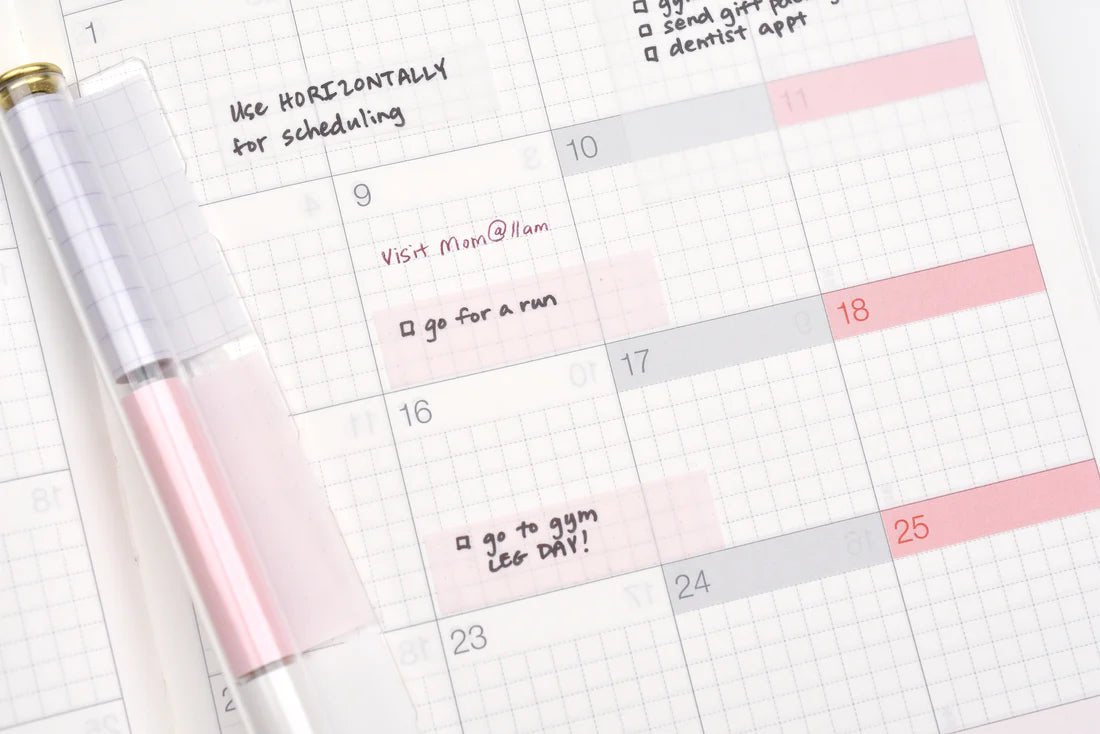 1
gy
send gift
dentist appt
Use HORIZONTALLY
for scheduling
11
10
9
3
4
Visit Mom@11am
go for a run
18
17
9
16
10
11
18
go to gym
LEG DAY!
25
24
16
23
17
18
2